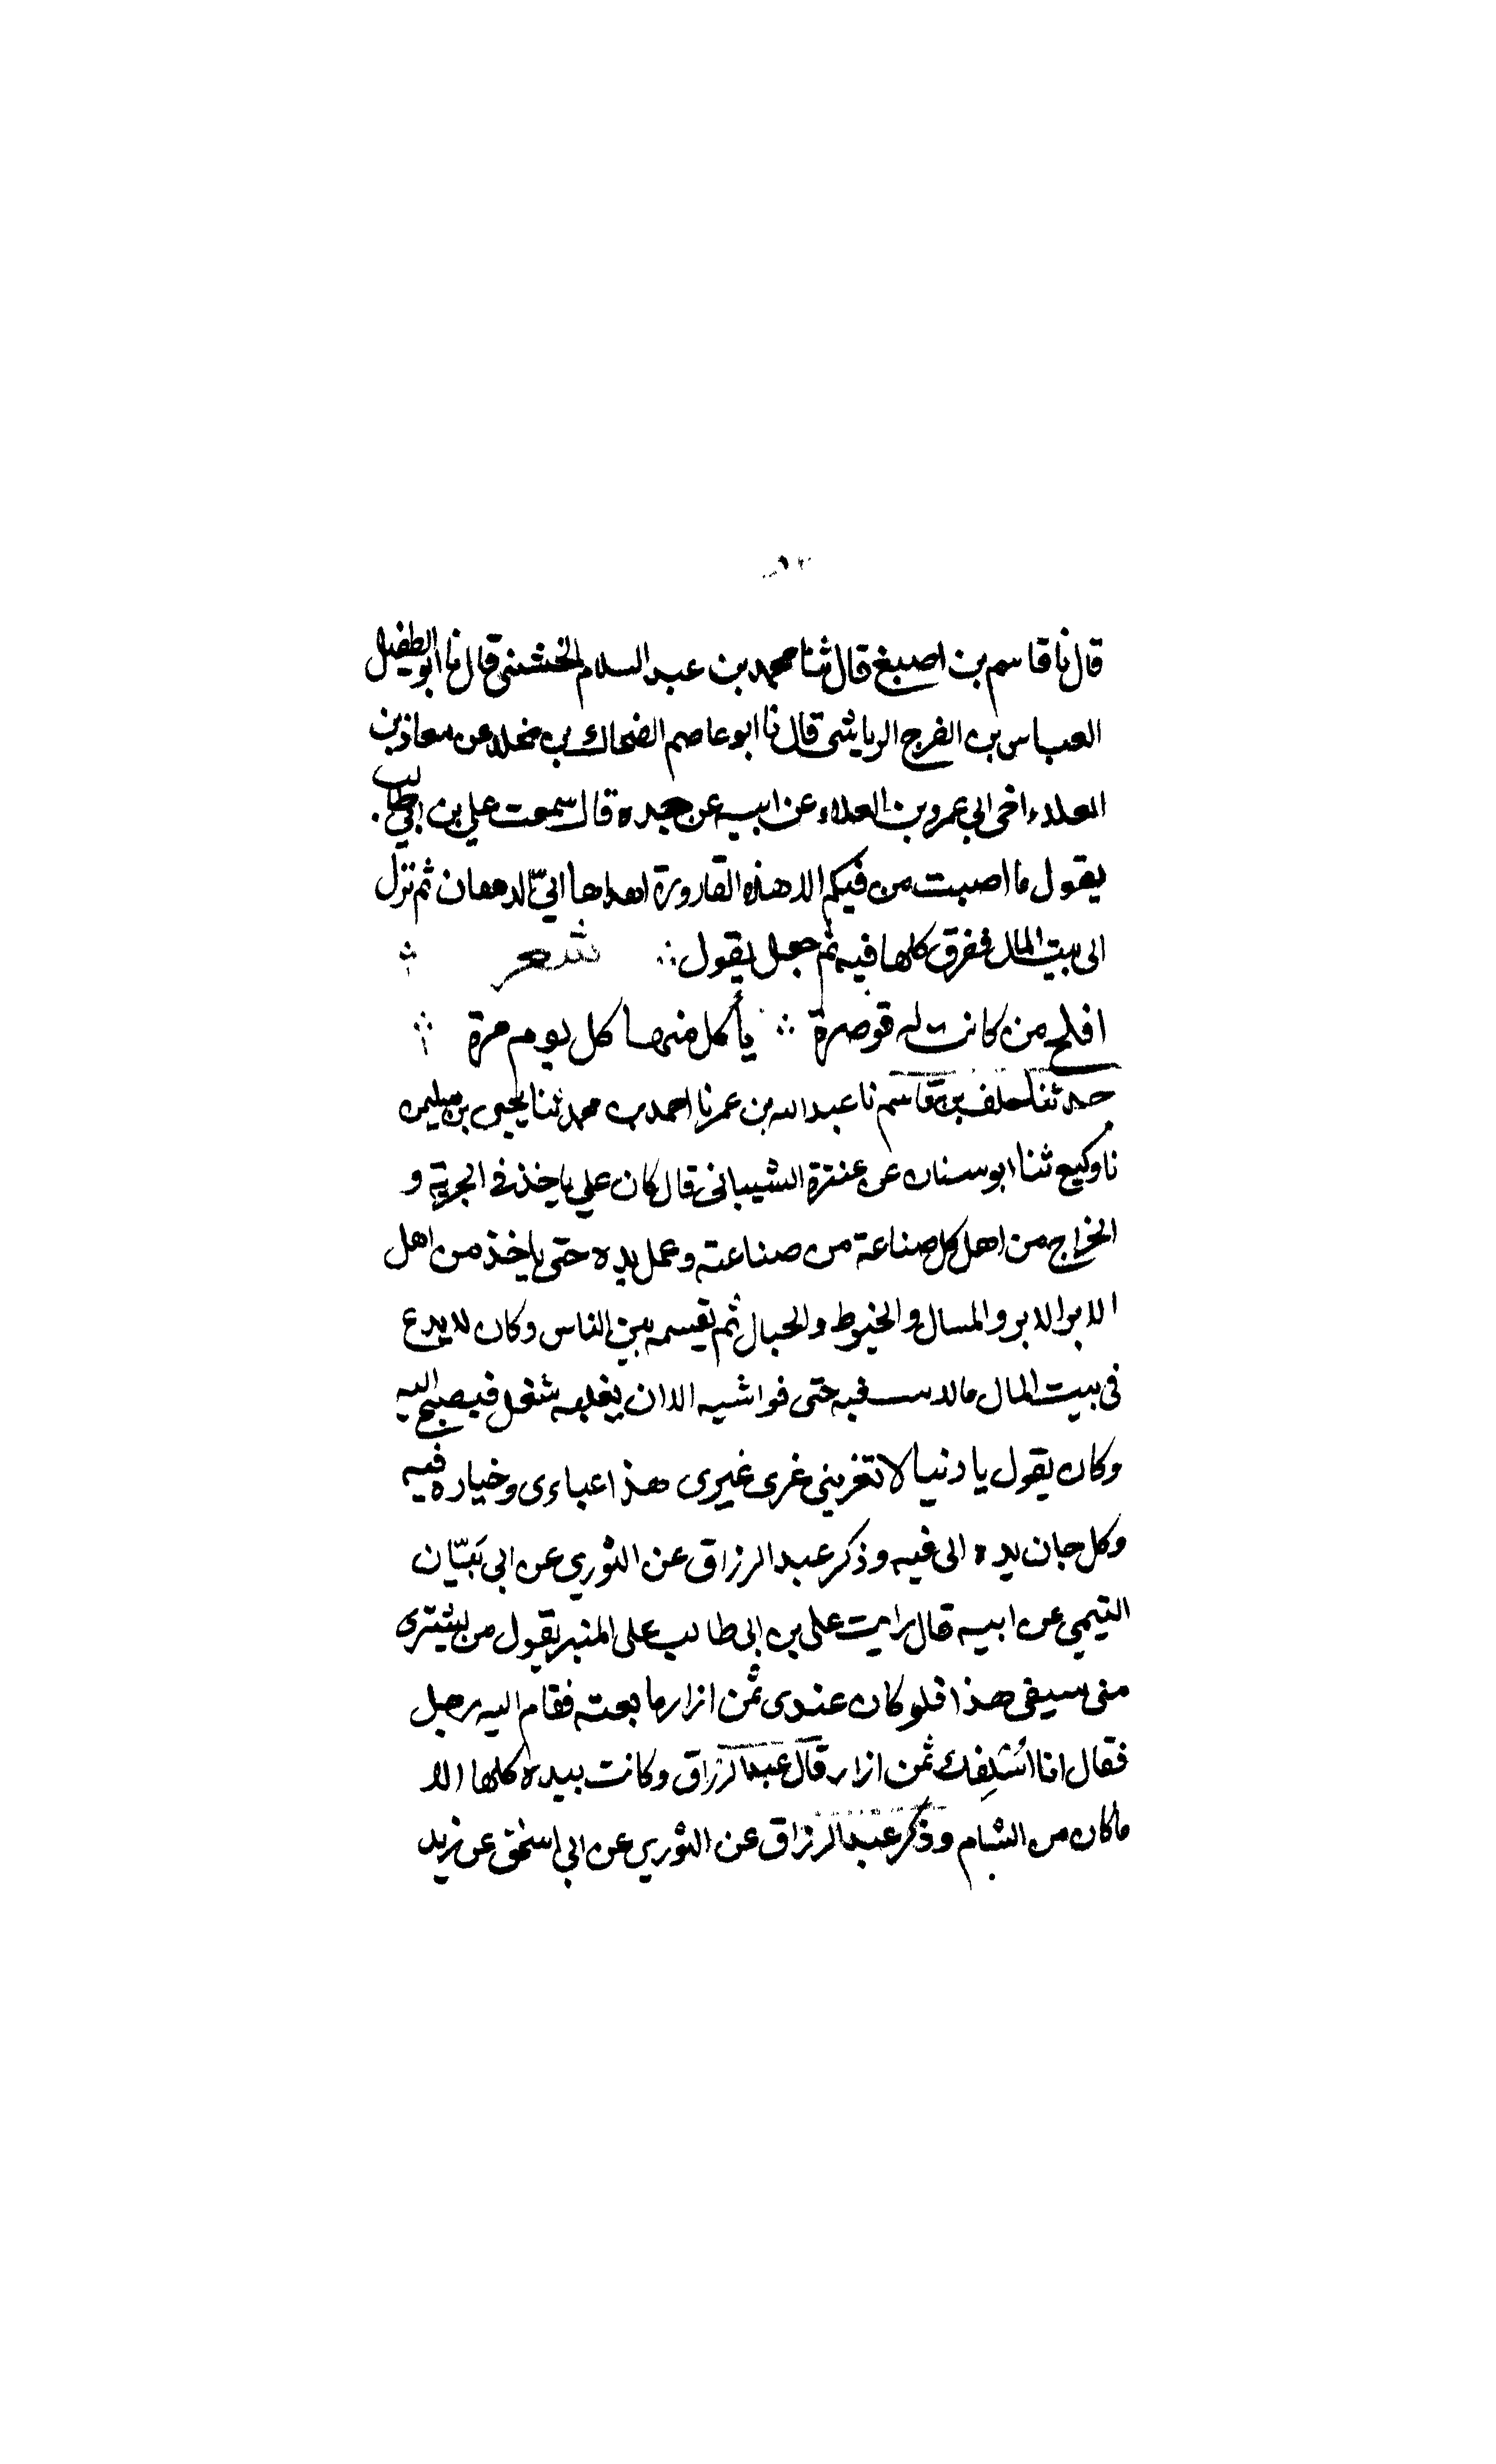 قال نا قاسم بن اصبغ قال ثنا محمد بن عبد السلام الخشنى قال نا ابو الطفيل
العباس بن الفرج الرياشى قال نا ابو عاصم الضحاك بن مخلد عن معاذ بن
العلاء اخى ابي عمرو بن العلاء عن ابيه عن جده قال سمعت علي بن ابي طالب
يقول ما اصبت من فيكم الا هذه القارورة اهداها اليّ الدهقان ثم نزل
الى بيت المال ففرق كلما فيه ثم جعل يقول شعر
افلح من كانت له قوصرة يأكل منها كل يوم مرة
حدثنا خلف بن قاسم نا عبد الله بن عمر نا احمد بن محمد ثنا يحيى بن سليمن
نا وكيع ثنا ابو سنان عن عنترة الشيبانى قال كان علي ياخذ فى الجزية و
الخراج من اهل كل صناعة من صناعته وعمل يده حتى ياخذ من اهل
الابر الابر والمسال والخيوط والحبال ثم يقسمه بين الناس وكان لا يدع
فى بيت المال مالا فيه حتى الا ان يغلبه شغل فيصبح اليه
وكان يقول يا دنيا لا تغريني غرى غيرى هذا وخياره فيه
وكل جان يده الى فيه وذكر عبد الرزاق عن الثوري عن ابي
التيمي عن ابيه قال رايت على بن ابى طالب على المنبر يقول من يشترى
منى سيفى هذا فلو كان عندى ثمن ازار ما بعته فقام اليه رجل
فقال انا اسُلِفك ثمن ازار قال عبد الرزاق وكانت بيده كلها الا
ما كان من الشام وذكر عبد الرزاق عن الثوري عن ابي اسحٰق عن زيد